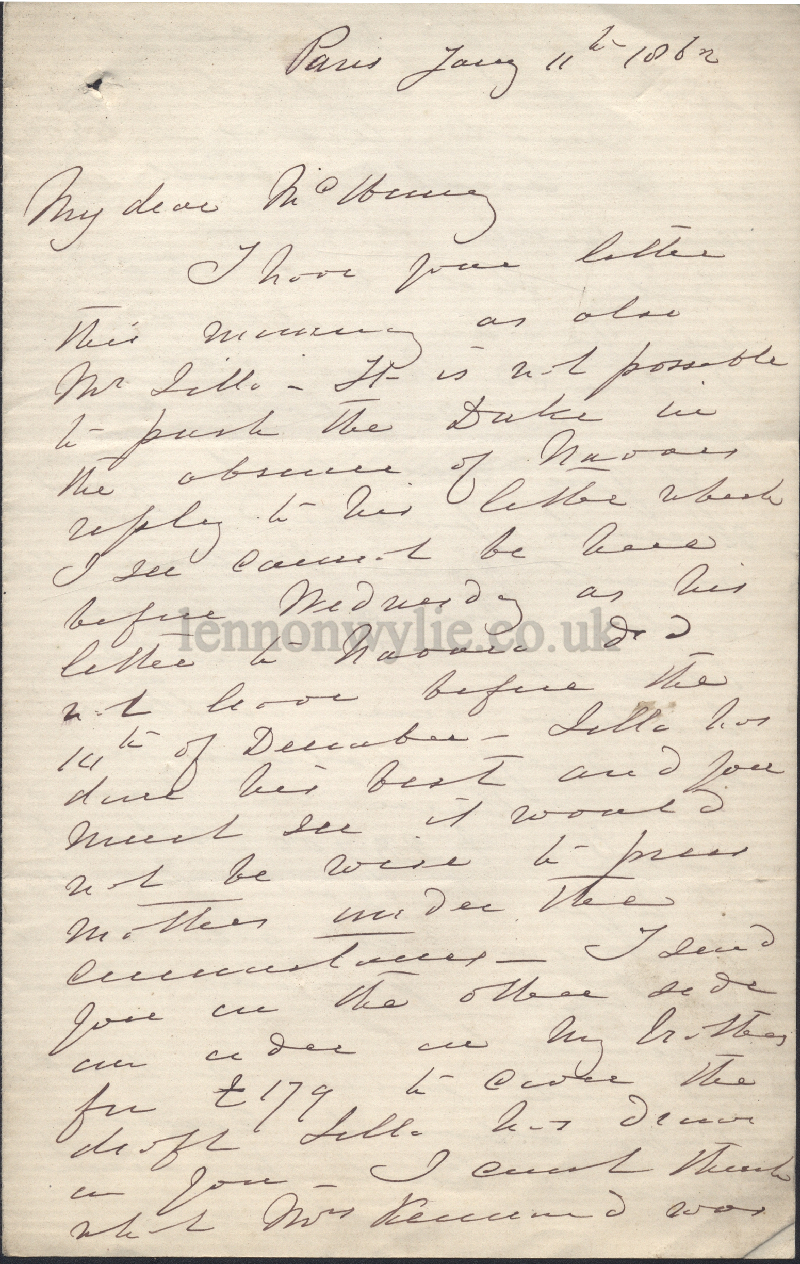 Paris Jany 11th 1862
My dear McHenry
I have your letter
this morning as also
Mr Lillo - It is not possible
to push the Duke in
the absence of Navarro
reply to his letter which
I see cannot be here
before Wednesday as his
letter to Navarro did
not leave before the
14th of December - Lillo has
done his best and you
must see it would
not be wise to press
matters under the
circumstances - I send
you on the other side
an order on my brother
for £179 to cover the
draft Lillo has drawn
on you - I cannot think
what Mrs Kennard was
lennonwylie.co.uk